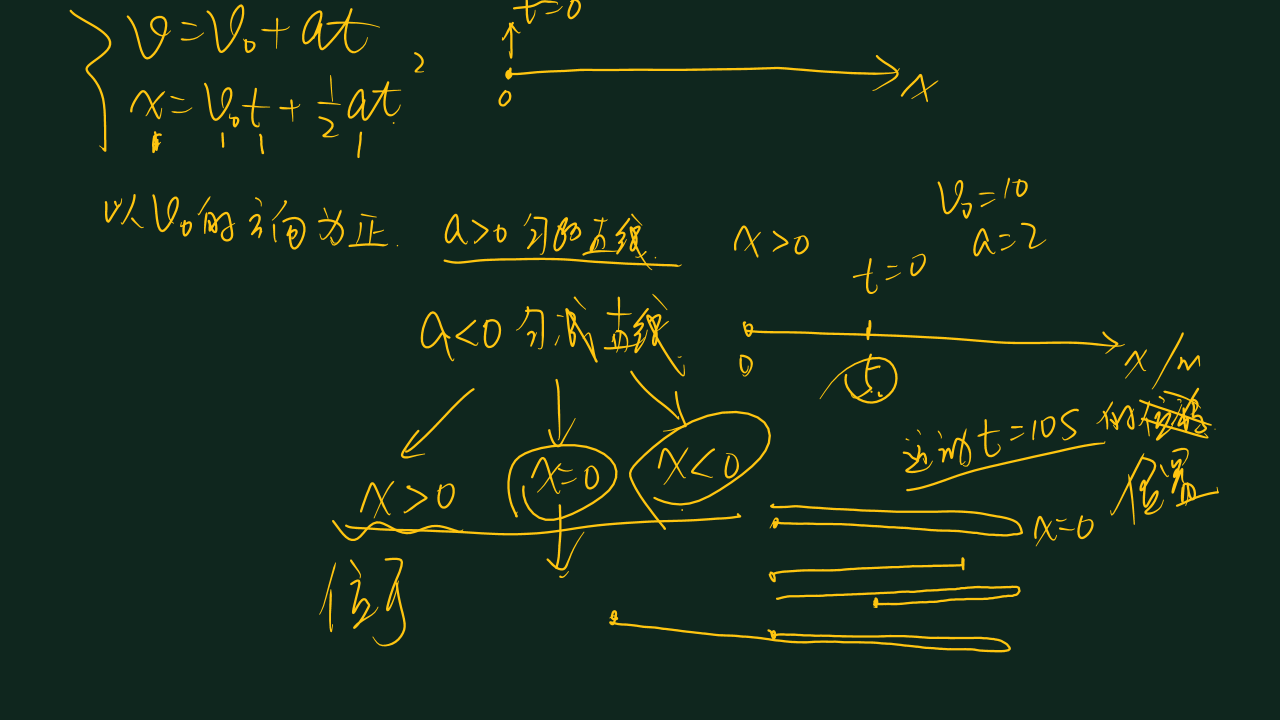 v=v₀+at
t=0
x=v₀t+½at²
0
x
以v₀的方向为正.
a>0 匀加直线
x>0
v₀=10
a=2
t=0
a<0 匀减直线
0
5
x/m
运动t=10s 的
位置
x>0
x=0
x<0
x=0
位移